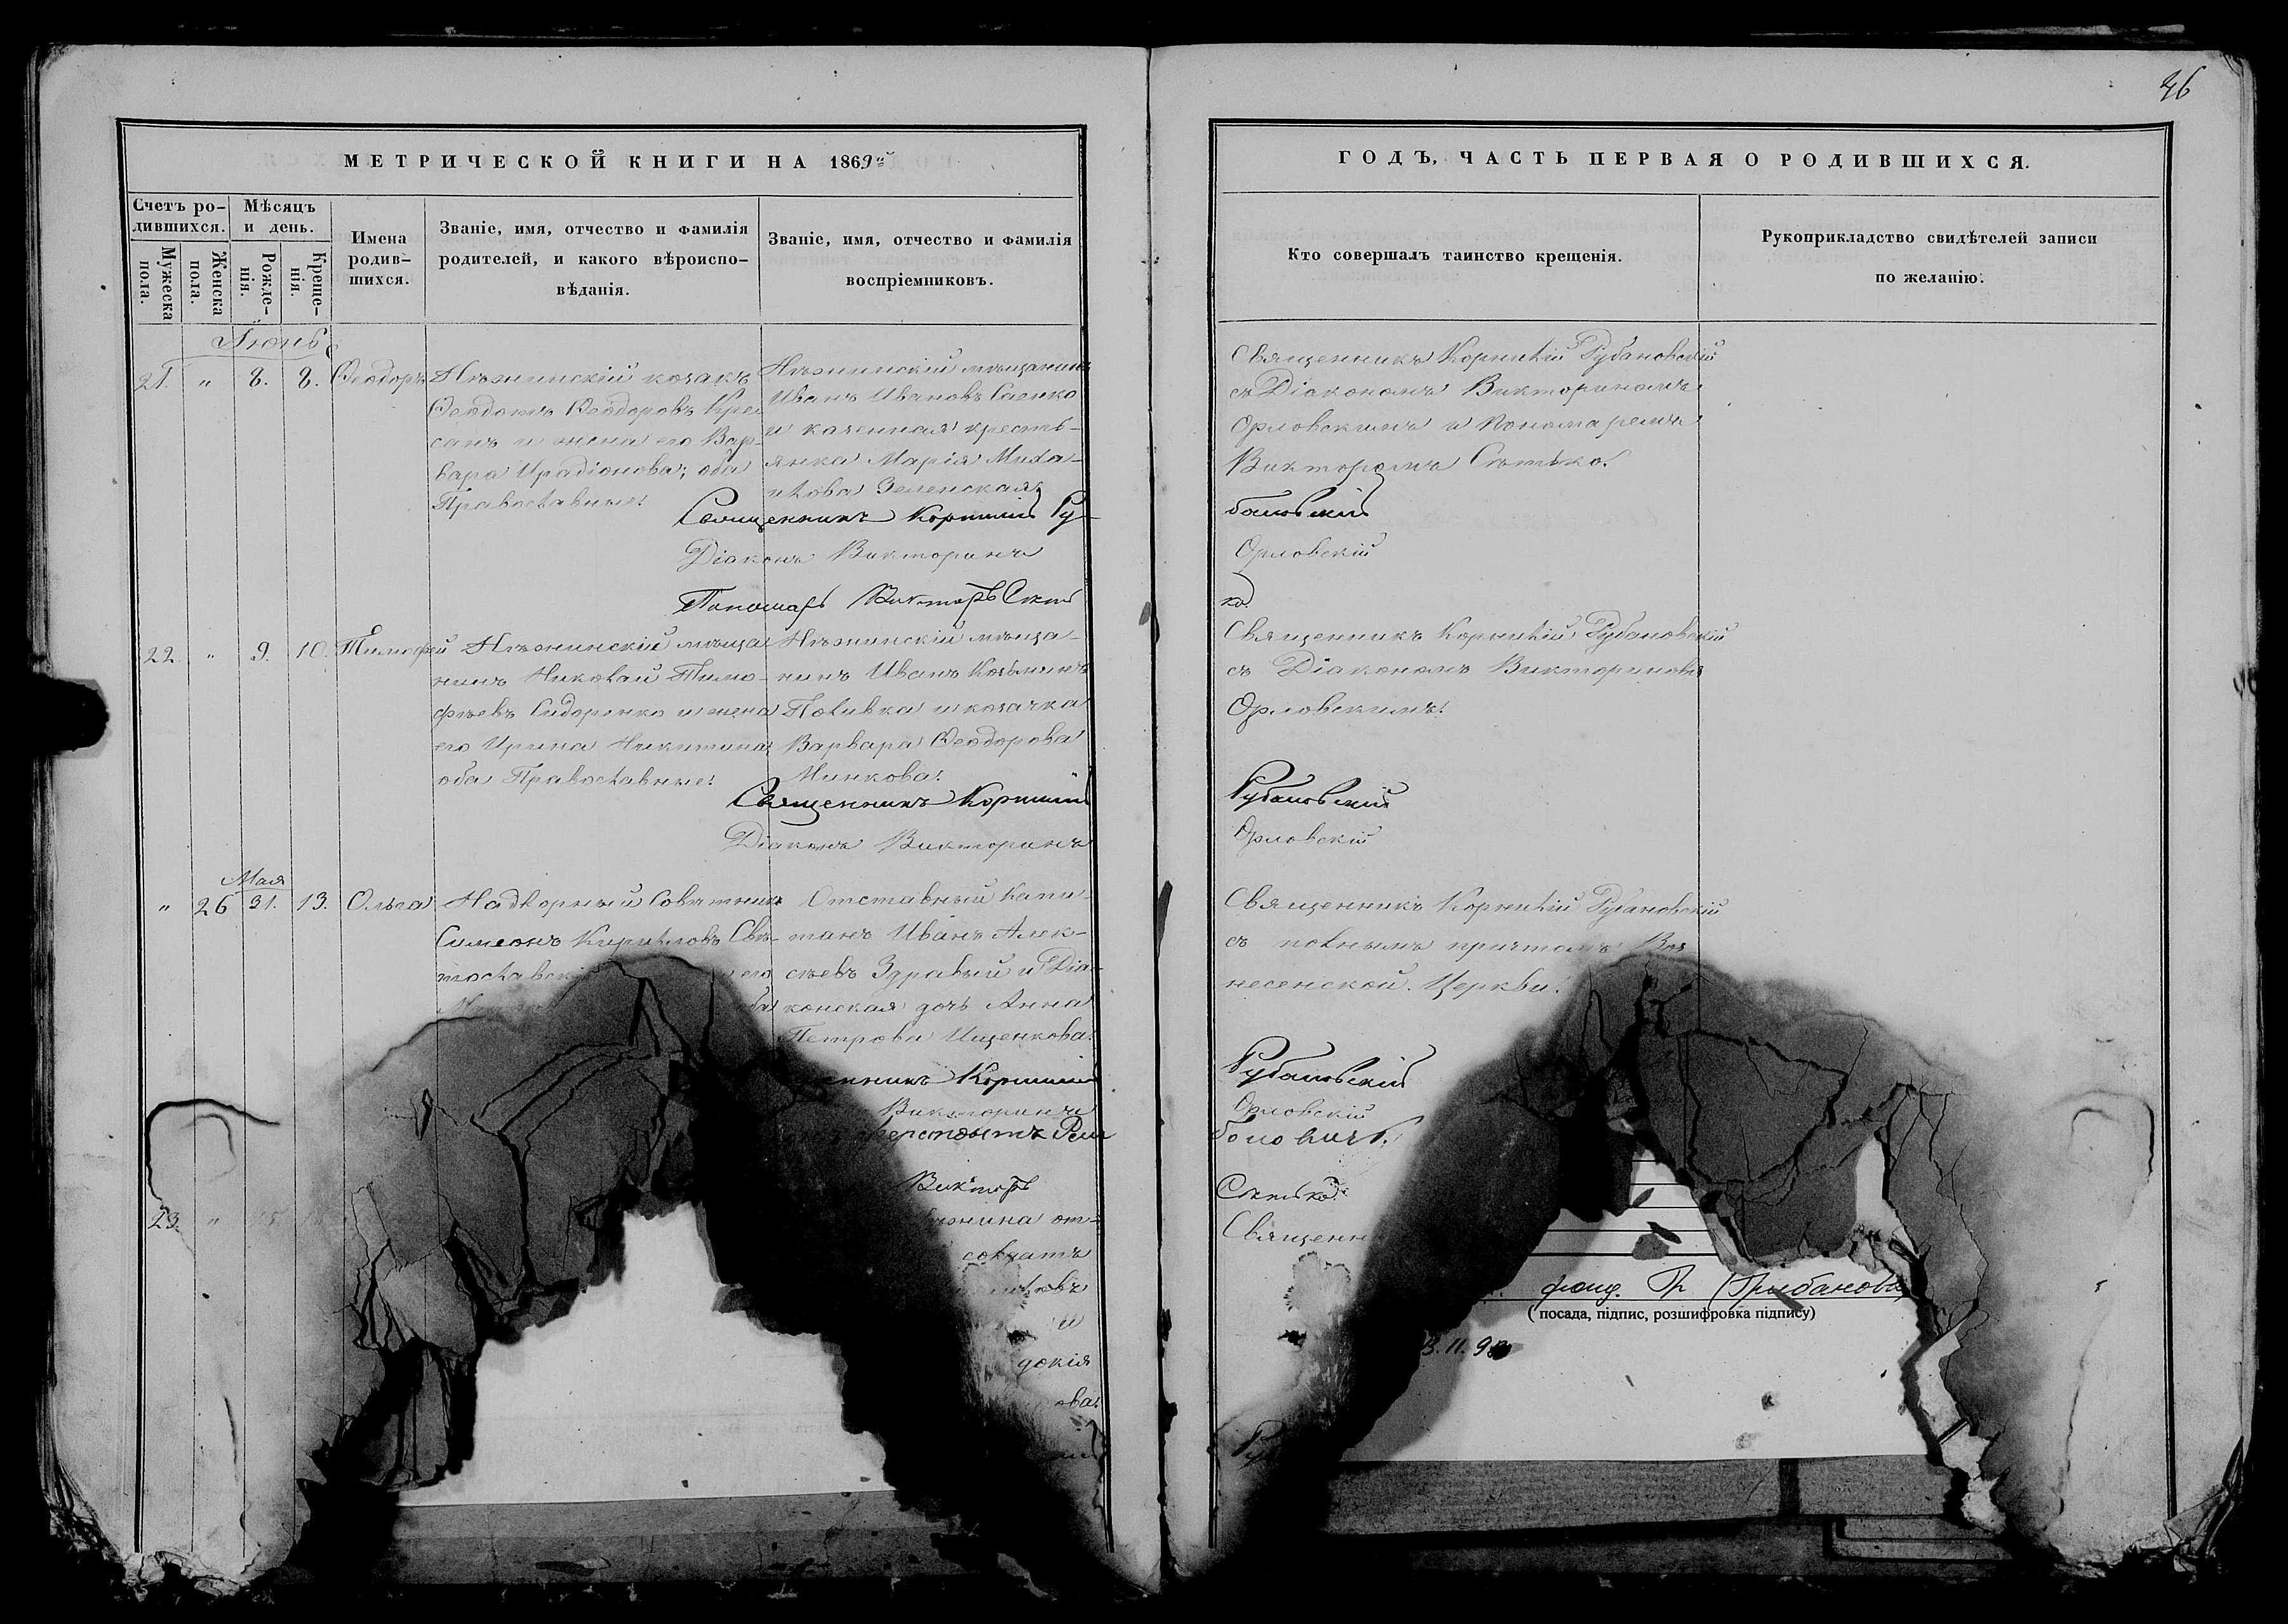 46
МЕТРИЧЕСКОЙ КНИГИ НА 1869й
ГОДЪ, ЧАСТЬ ПЕРВАЯ О РОДИВШИХСЯ.
Счетъ ро-
дившихся.
Мужеска
пола.
Женска
пола.
Мѣсяцъ
и день.
Рожде-
нія.
Креще-
нія.
Имена
родив-
шихся.
Званіе, имя, отчество и фамилія
родителей, и какого вѣроиспо-
вѣданія.
Званіе, имя, отчество и фамилія
воспріемниковъ.
Кто совершалъ таинство крещенія.
Рукоприкладство свидѣтелей записи
по желанію.
Іюнь
21. " 8. 8. Ѳеодоръ
Нѣжинскій козакъ
Ѳеодотъ Ѳеодоровъ
санъ и жена его Вар-
вара Иродіонова; оба
Православные.
Нѣжинскій мѣщанинъ
Иванъ Ивановъ Саенко
и казенная кресть-
янка Марія Миха-
илова Зеленская.
Священникъ Корнилій Рубановскій
съ Діакономъ Викториномъ
Орловскимъ и Пономаремъ
Викторомъ Сѣтько.
Священникъ Корнилій Ру-
бановскій
Діаконъ Викторинъ
Орловскій
Пономарь Викторъ Сѣть
ко.
22. " 9. 10. Тимофей
Нѣжинскій мѣща-
нинъ Николай Тимо-
фѣевъ Сидоренко и жена
его Ирина Никитина;
оба Православные.
Нѣжинскій мѣща-
нинъ Иванъ Козьминъ
Поливка и козачка
Варвара Ѳеодорова
Минкова.
Священникъ Корнилій Рубановскій
съ Діакономъ Викториномъ
Орловскимъ.
Священникъ Корнилій
Рубановскій
Діаконъ Викторинъ
Орловскій
Мая
" 26 31. 13. Ольга
Надворный Совѣтникъ
Симеонъ Кириловъ Свѣ-
тославскі его
оба
Отставный Капи-
танъ Иванъ Алек-
сѣевъ Здравый и Діа-
конская дочь Анна
Петрова Ищенкова.
Священникъ Корнилій Рубановскій
съ полнымъ причтомъ Воз
несенской Церкви.
енникъ Корнилій
Рубановскій
Викторинъ
Орловскій
Викторъ
Сѣтько
23. "
ѣжина от-
солдатъ
и
докія
ова.
Священн
Ру
фонд.
(посада, підпис, розшифровка підпису)